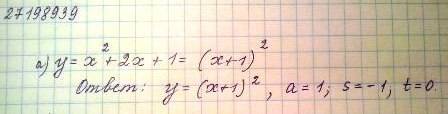 27198939
а) y = x² + 2x + 1 = (x+1)²
Ответ: y = (x+1)², a = 1; s = -1; t = 0.